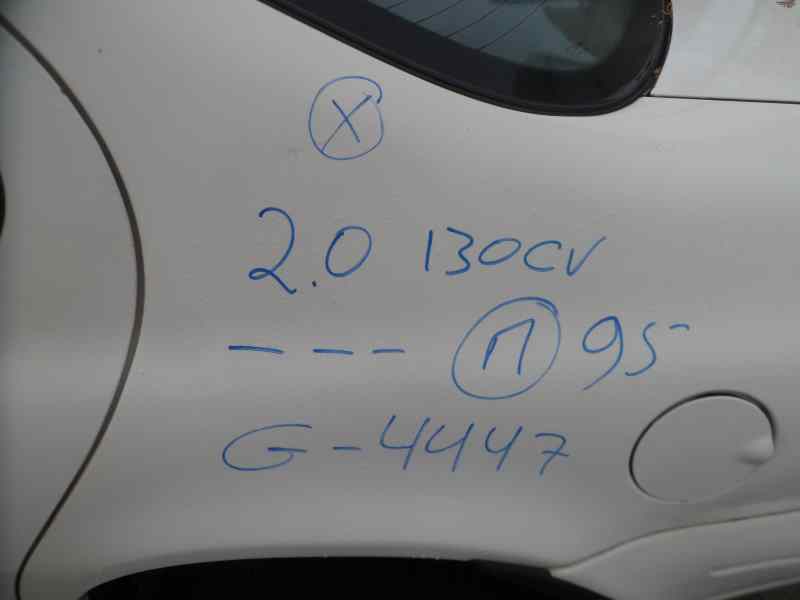 X
2.0 130CV
--- П 95
G-4447